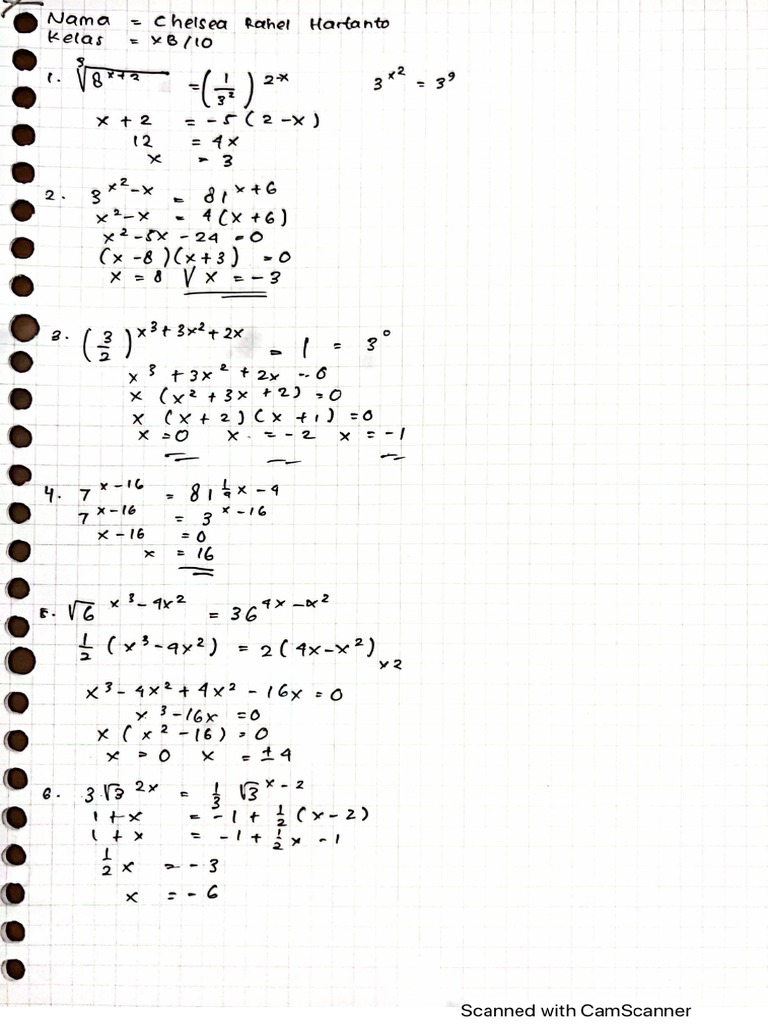 Nama = Chelsea Rahel Hartanto
Kelas = XB/10
1. ∛(8^(x+2)) = (1/3²)^(2-x)    3^(x²) = 3⁹
x + 2 = -5(2-x)
12 = 4x
x = 3
2. 3^(x²-x) = 81^(x+6)
x²-x = 4(x+6)
x²-5x-24 = 0
(x-8)(x+3) = 0
x = 8 V x = -3
3. (3/2)^(x³+3x²+2x) = 1 = 3⁰
x³ + 3x² + 2x = 0
x (x² + 3x + 2) = 0
x (x+2)(x+1) = 0
x = 0  x = -2  x = -1
4. 7^(x-16) = 81^(¼x-4)
7^(x-16) = 3^(x-16)
x-16 = 0
x = 16
5. √6^(x³-4x²) = 36^(4x-x²)
½ (x³-4x²) = 2(4x-x²) x2
x³-4x²+4x²-16x = 0
x³-16x = 0
x (x²-16) = 0
x = 0  x = ±4
6. 3√3^(2x) = ⅓ √3^(x-2)
1+x = -1+½(x-2)
1+x = -1+½x-1
½x = -3
x = -6
Scanned with CamScanner